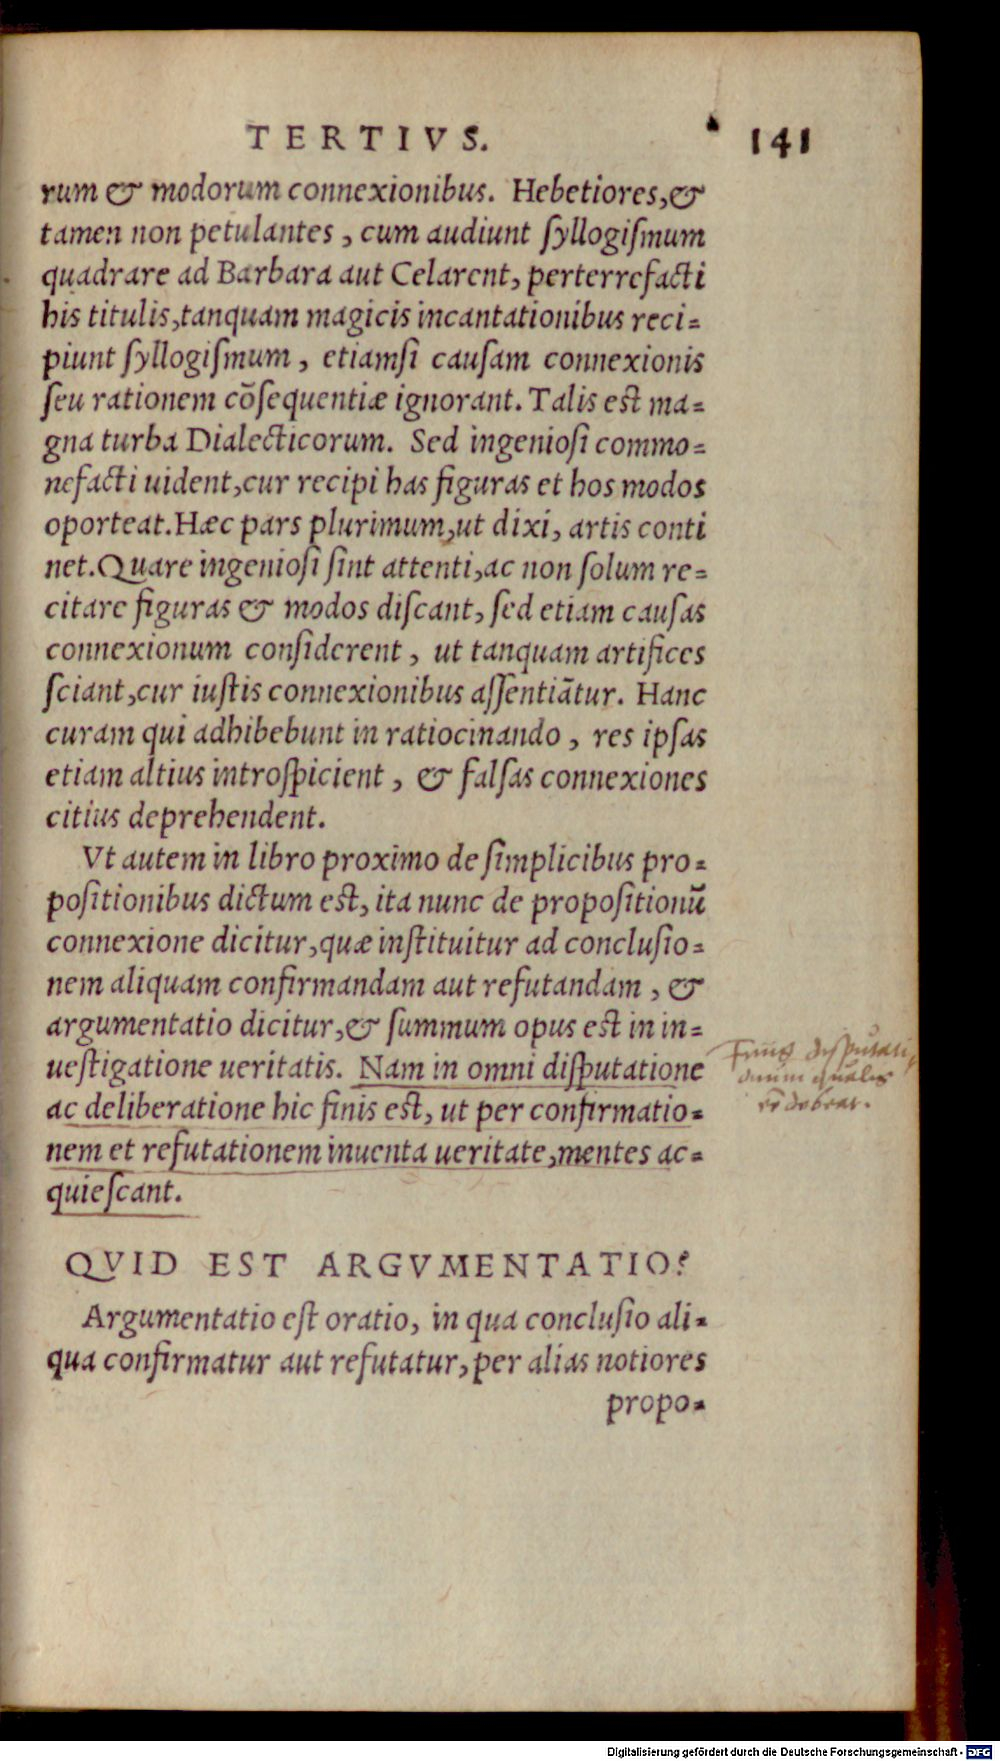 TERTIVS. 141
rum & modorum connexionibus. Hebetiores,&
tamen non petulantes, cum audiunt ſyllogiſmum
quadrare ad Barbara aut Celarent, perterrefacti
his titulis,tanquam magicis incantationibus reci-
piunt ſyllogiſmum, etiamſi cauſam connexionis
ſeu rationem cōſequentiæ ignorant. Talis eſt ma-
gna turba Dialecticorum. Sed ingenioſi commo-
nefacti uident,cur recipi has figuras et hos modos
oporteat.Hæc pars plurimum,ut dixi, artis conti
net.Quare ingenioſi ſint attenti,ac non ſolum re-
citare figuras & modos diſcant, ſed etiam cauſas
connexionum conſiderent, ut tanquam artifices
ſciant,cur iuſtis connexionibus aſſentiātur. Hanc
curam qui adhibebunt in ratiocinando, res ipſas
etiam altius introſpicient, & falſas connexiones
citius deprehendent.
Vt autem in libro proximo de ſimplicibus pro-
poſitionibus dictum eſt, ita nunc de propoſitionū
connexione dicitur,quæ inſtituitur ad concluſio-
nem aliquam confirmandam aut refutandam, &
argumentatio dicitur,& ſummum opus eſt in in-
ueſtigatione ueritatis. Nam in omni diſputatione
ac deliberatione hic finis eſt, ut per confirmatio-
nem et refutationem inuenta ueritate,mentes ac-
quieſcant.
qualis
QVID EST ARGVMENTATIO?
Argumentatio eſt oratio, in qua concluſio ali-
qua confirmatur aut refutatur, per alias notiores
propo-
Digitalisierung gefördert durch die Deutsche Forschungsgemeinschaft - DFG